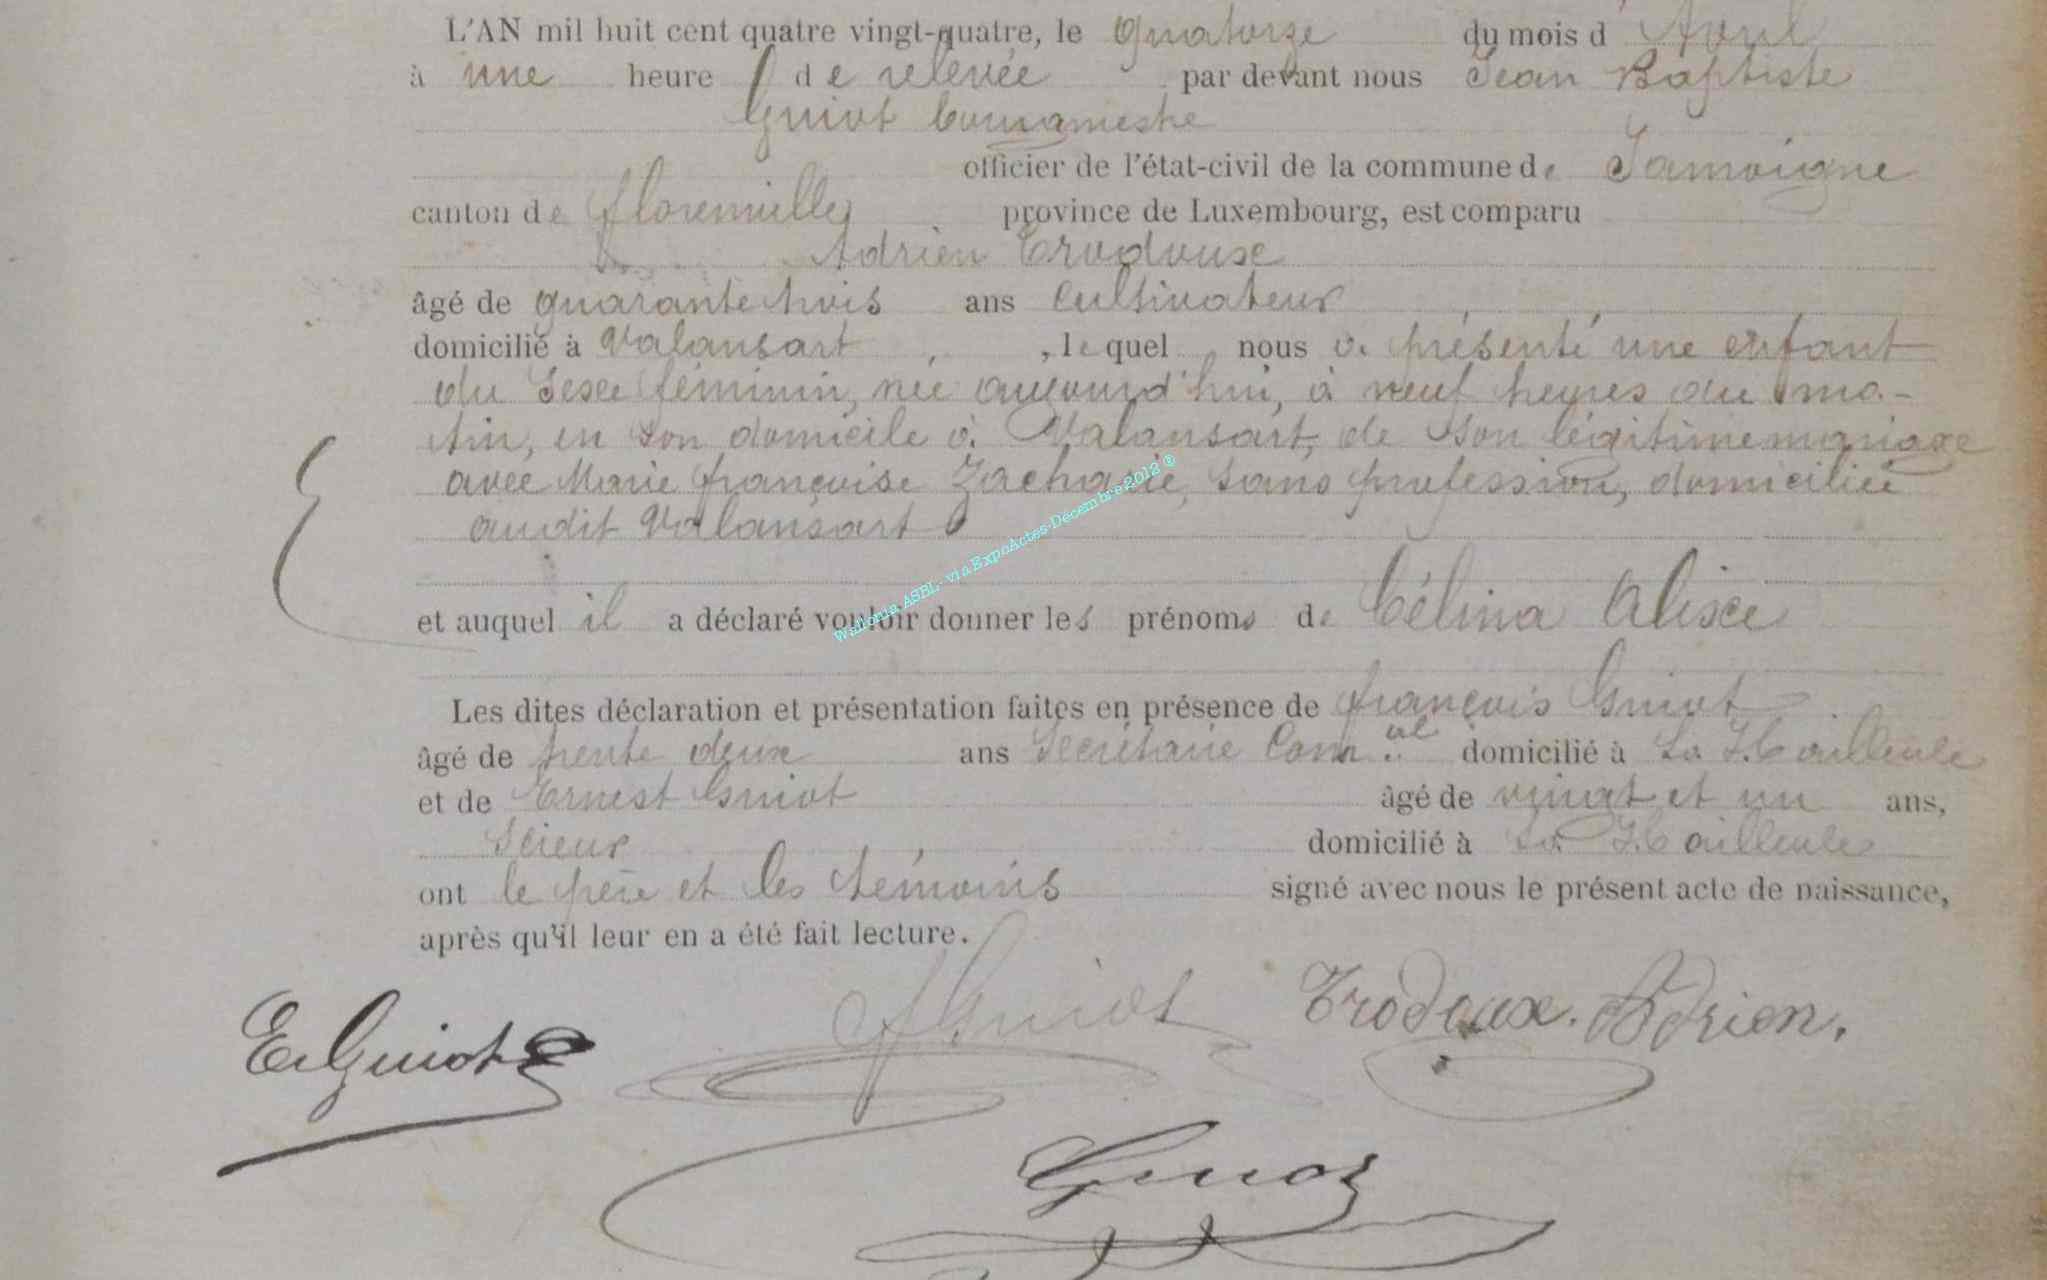 L'AN mil huit cent quatre vingt-quatre, le quatorze du mois d'Avril
à une heure de relevée par devant nous Jean Baptiste
Guiot bourgmestre
officier de l'état-civil de la commune de Jamoigne
canton de florenville province de Luxembourg, est comparu
Adrien Trodoux
âgé de quarante trois ans cultivateur
domicilié à Valansart, lequel nous a présenté une enfant
du sexe féminin, née aujourd'hui, à neuf heures du ma-
tin, en son domicile à Valansart, de son légitime mariage
avec Marie françoise Zacharie, sans profession, domiciliée
audit Valansart
et auquel il a déclaré vouloir donner les prénoms de Célina Alisce
Wallonia ASBL - via ExpoActes-Décembre 2012 ®
Les dites déclaration et présentation faites en présence de françois Guiot
âgé de trente deux ans Secrétaire Com.al domicilié à La Hailleule
et de Ernest Guiot âgé de vingt et un ans,
Scieur domicilié à La Hailleule
ont le père et les témoins signé avec nous le présent acte de naissance,
après qu'il leur en a été fait lecture.
E. Guiot f Guiot Trodoux. Adrien.
Guiot